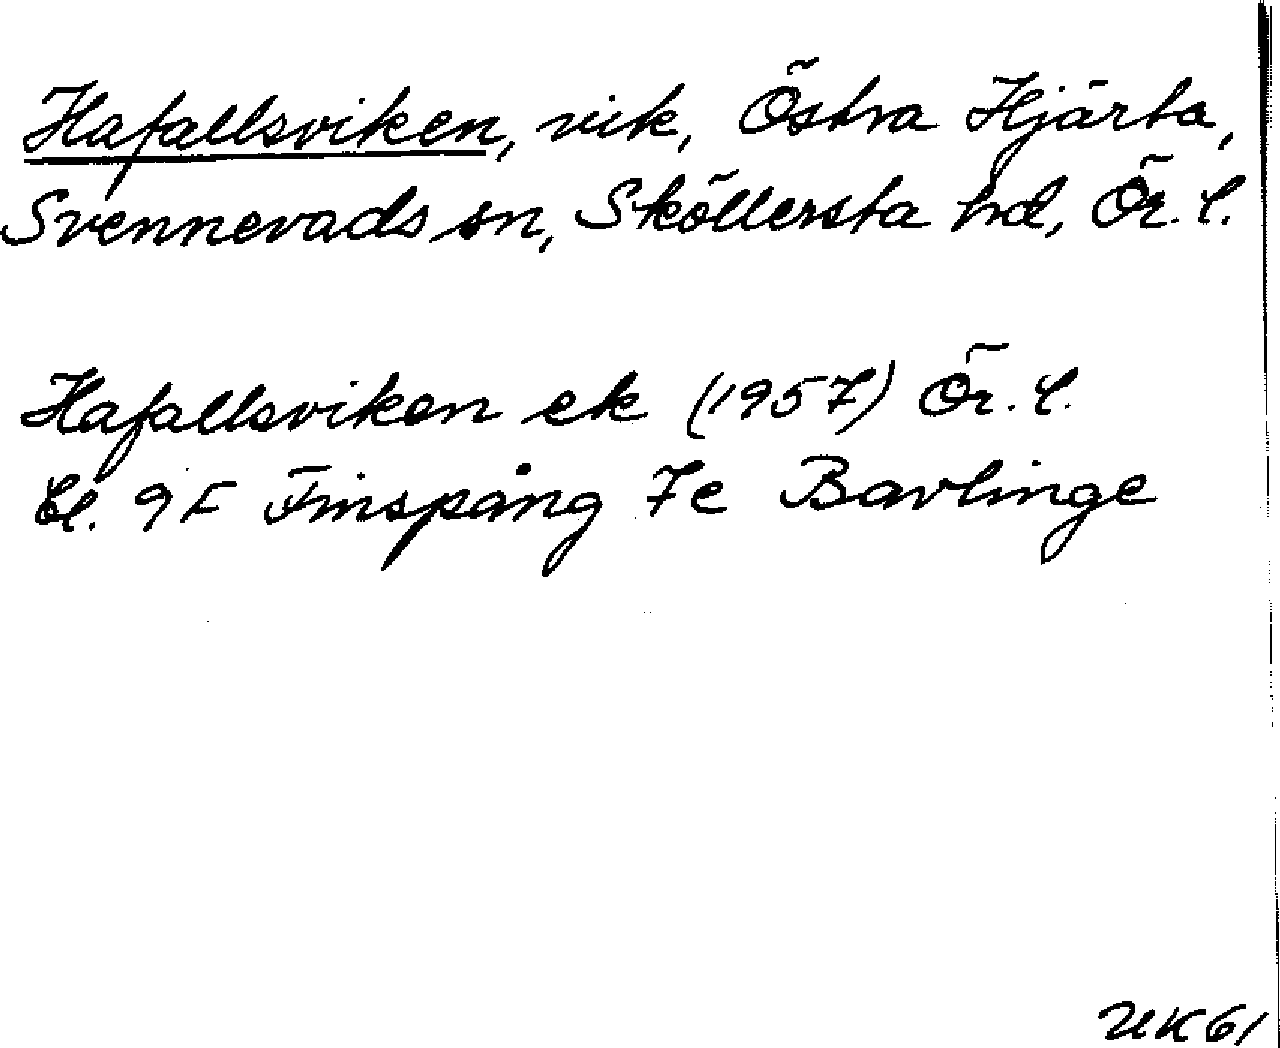 Hafallsviken, vik, Östra Hjärta,
Svennevads sn, Sköllersta hd, Ör. l.
Hafallsviken ek (1957) Ör. l.
bl. 9F Finspång 7e Bavlinge
UK61